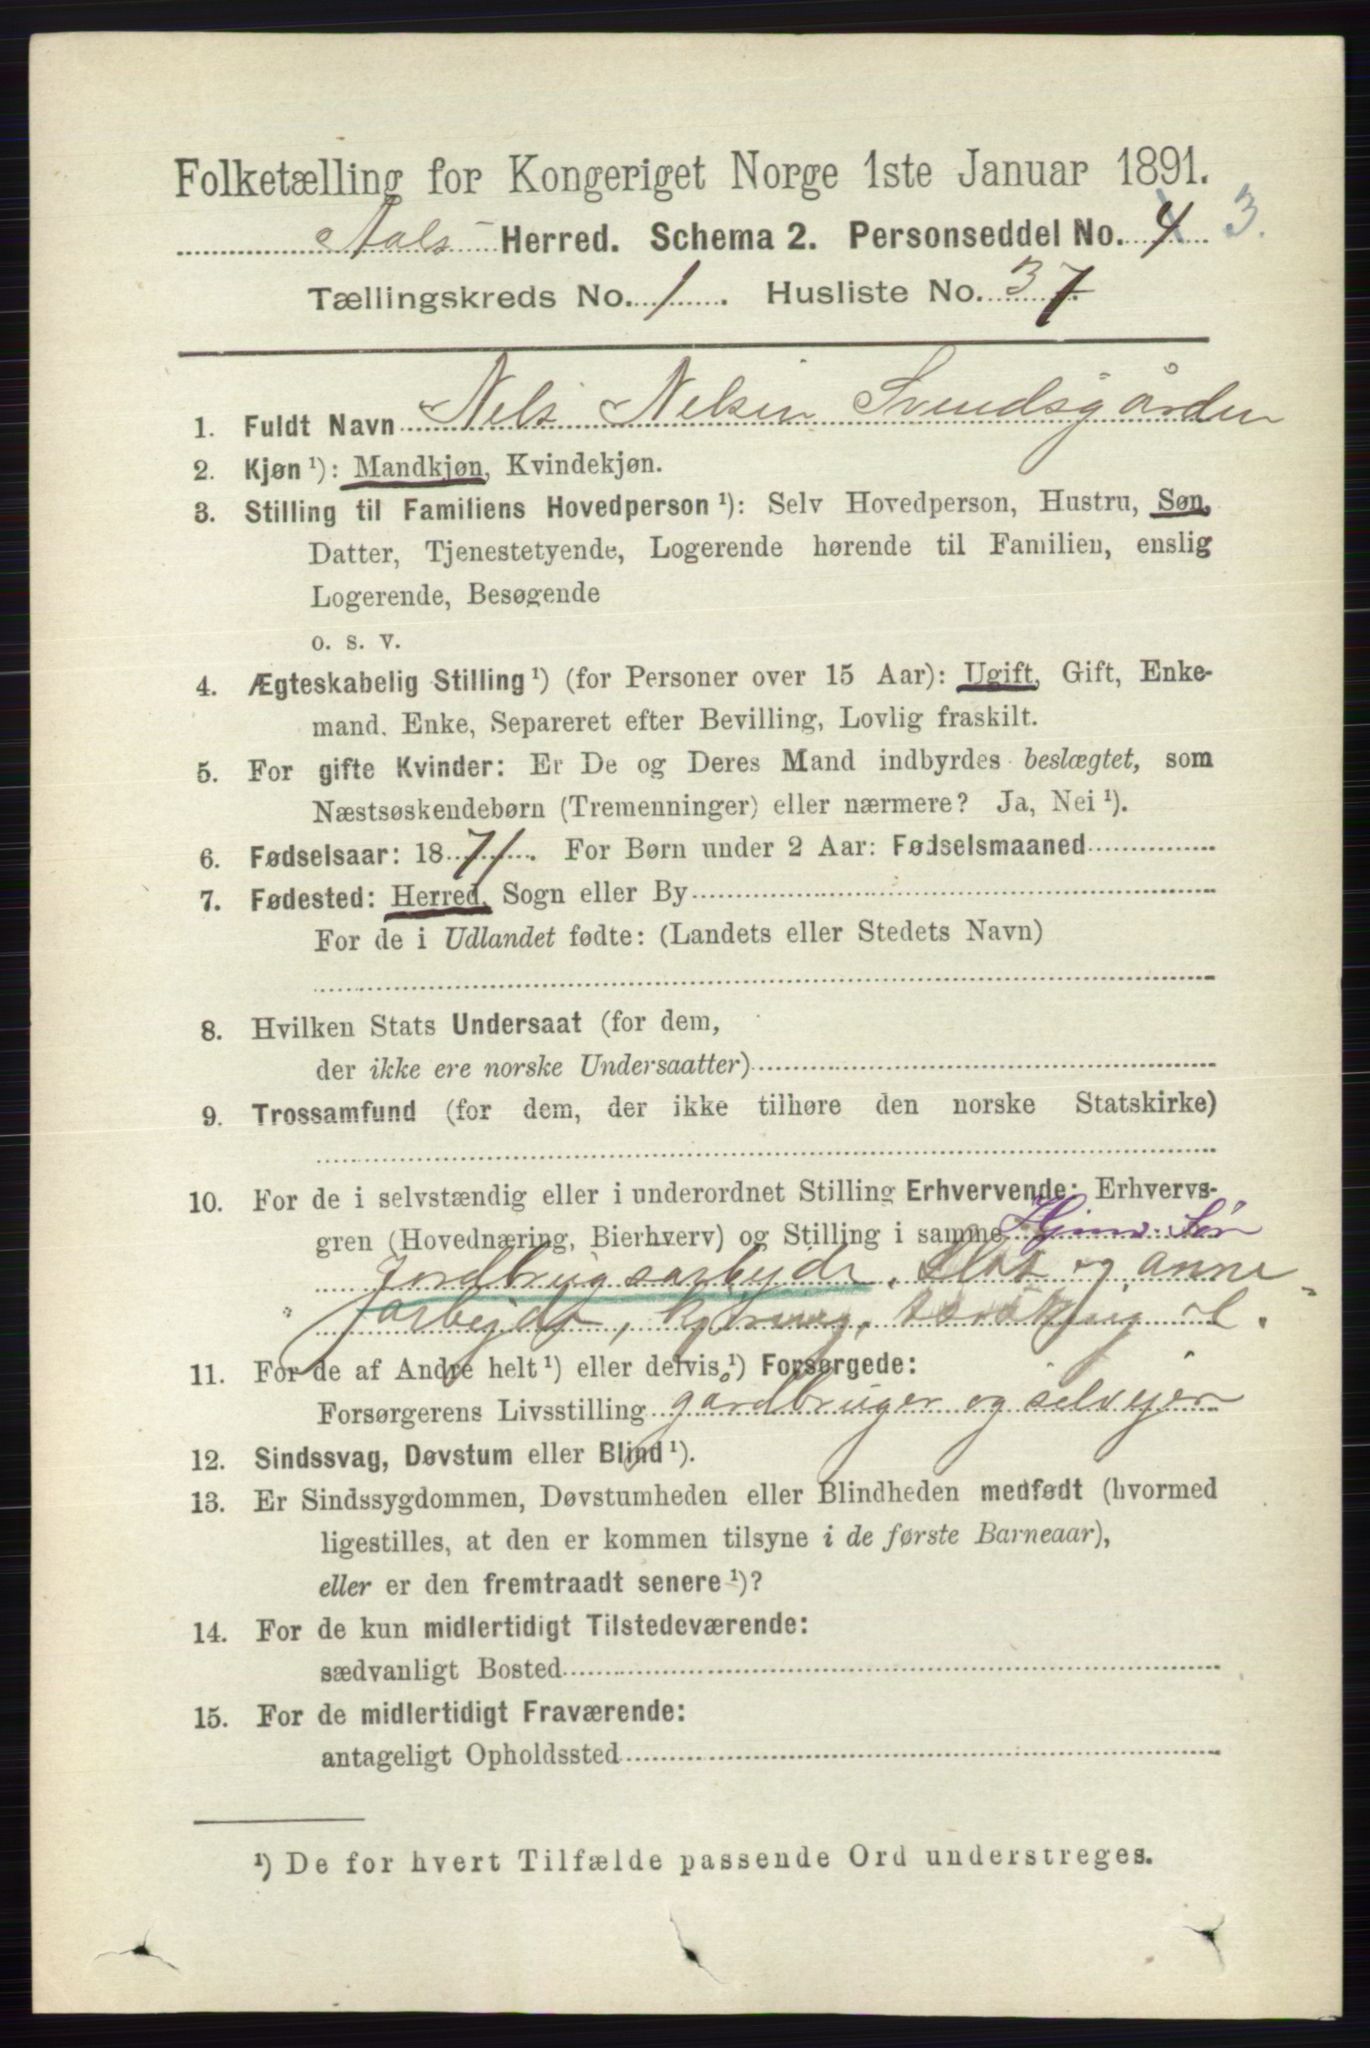 Folketælling for Kongeriget Norge 1ste Januar 1891.
Aals Herred. Schema 2. Personseddel No. 4 3.
Tællingskreds No. 1. Husliste No. 37.
1. Fuldt Navn Nels Nelsen Svendsgården
2. Kjøn ¹): Mandkjøn, Kvindekjøn.
3. Stilling til Familiens Hovedperson ¹): Selv Hovedperson, Hustru, Søn,
Datter, Tjenestetyende, Logerende hørende til Familien, enslig
Logerende, Besøgende
o. s. v.
4. Ægteskabelig Stilling ¹) (for Personer over 15 Aar): Ugift, Gift, Enke-
mand. Enke, Separeret efter Bevilling, Lovlig fraskilt.
5. For gifte Kvinder: Er De og Deres Mand indbyrdes beslægtet, som
Næstsøskendebørn (Tremenninger) eller nærmere? Ja, Nei ¹).
6. Fødselsaar: 1871. For Børn under 2 Aar: Fødselsmaaned
7. Fødested: Herred, Sogn eller By
For de i Udlandet fødte: (Landets eller Stedets Navn)
8. Hvilken Stats Undersaat (for dem,
der ikke ere norske Undersaatter)
9. Trossamfund (for dem, der ikke tilhøre den norske Statskirke)
10. For de i selvstændig eller i underordnet Stilling Erhvervende: Erhvervs-
gren (Hovednæring, Bierhverv) og Stilling i samme Hjmv. Søn
Jordbrugsarbejde, Slot og anne
arbejde, kjøring,
11. For de af Andre helt ¹) eller delvis ¹) Forsørgede:
Forsørgerens Livsstilling gårdbruger og selvejer
12. Sindssvag, Døvstum eller Blind ¹).
13. Er Sindssygdommen, Døvstumheden eller Blindheden medfødt (hvormed
ligestilles, at den er kommen tilsyne i de første Barneaar),
eller er den fremtraadt senere ¹)?
14. For de kun midlertidigt Tilstedeværende:
sædvanligt Bosted
15. For de midlertidigt Fraværende:
antageligt Opholdssted
¹) De for hvert Tilfælde passende Ord understreges.